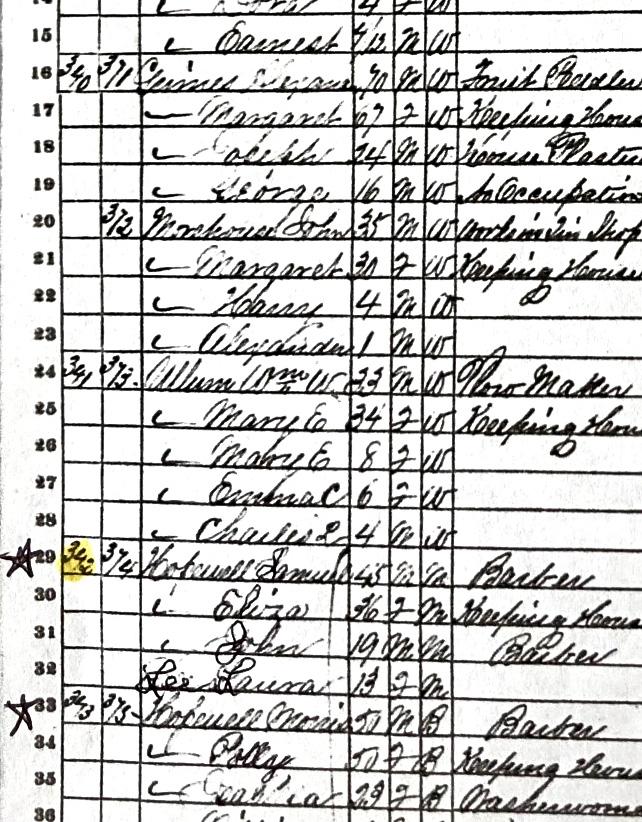 4 F W
15 " Earnest 7/12 M W
16 340 371 Grimes 70 M W Fruit
17 " Margaret 67 F W Keeping Hous
18 " Joseph 24 M W House Plaster
19 " George 16 M W No Occupation
20 372 Morehouse John 35 M W Works in Tin Shop
21 " Margaret 30 F W Keeping House
22 " Harry 4 M W
23 " Alexander 1 M W
24 341 373 Allum Wm W. 33 M W Plow Maker
25 " Mary E 34 F W Keeping Hous
26 " Mary E 8 F W
27 " Emma C 6 F W
28 " Charles L 4 M W
29 342 374 Hopewell Samuel 45 M M Barber
30 " Eliza 36 F M Keeping Hous
31 " John 19 M M Barber
32 Lee Laura 13 F M
33 343 375 Hopewell Morris 50 M B Barber
34 " Polly 50 F B Keeping Hous
35 " 29 F B Washerwoma
36